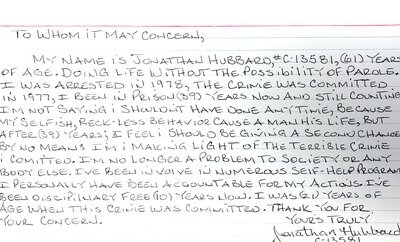 TO WHOM IT MAY CONCERN,
MY NAME IS JONATHAN HUBBARD, #C-13581, (61) YEARS
OF AGE. DOING LIFE WITHOUT THE POSSIBILITY OF PAROLE.
I WAS ARRESTED IN 1978, THE CRIME WAS COMMITTED
IN 1977, I BEEN IN PRISON (39) YEARS NOW AND STILL COUNTING
I'M NOT SAYING I SHOULDN'T HAVE DONE ANY TIME, BECAUSE
MY SELFISH, RECK-LESS BEHAVIOR CAUSE A MAN HIS LIFE, BUT
AFTER (39) YEARS; I FEEL I SHOULD BE GIVING A SECOND CHANCE
BY NO MEANS I'M I MAKING LIGHT OF THE TERRIBLE CRIME
I COMITTED. I'M NO LONGER A PROBLEM TO SOCIETY OR ANY
BODY ELSE. I'VE BEEN INVOLVE IN NUMEROUS SELF-HELP PROGRAM
I PERSONALLY HAVE BEEN ACCOUNTABLE FOR MY ACTIONS. I'VE
BEEN DISCIPLINARY FREE YEARS NOW. I WAS (21) YEARS OF
AGE WHEN THIS CRIME WAS COMMITTED. THANK YOU FOR
YOUR CONCERN. YOURS TRULY
Jonathan Hubbard
C-13581